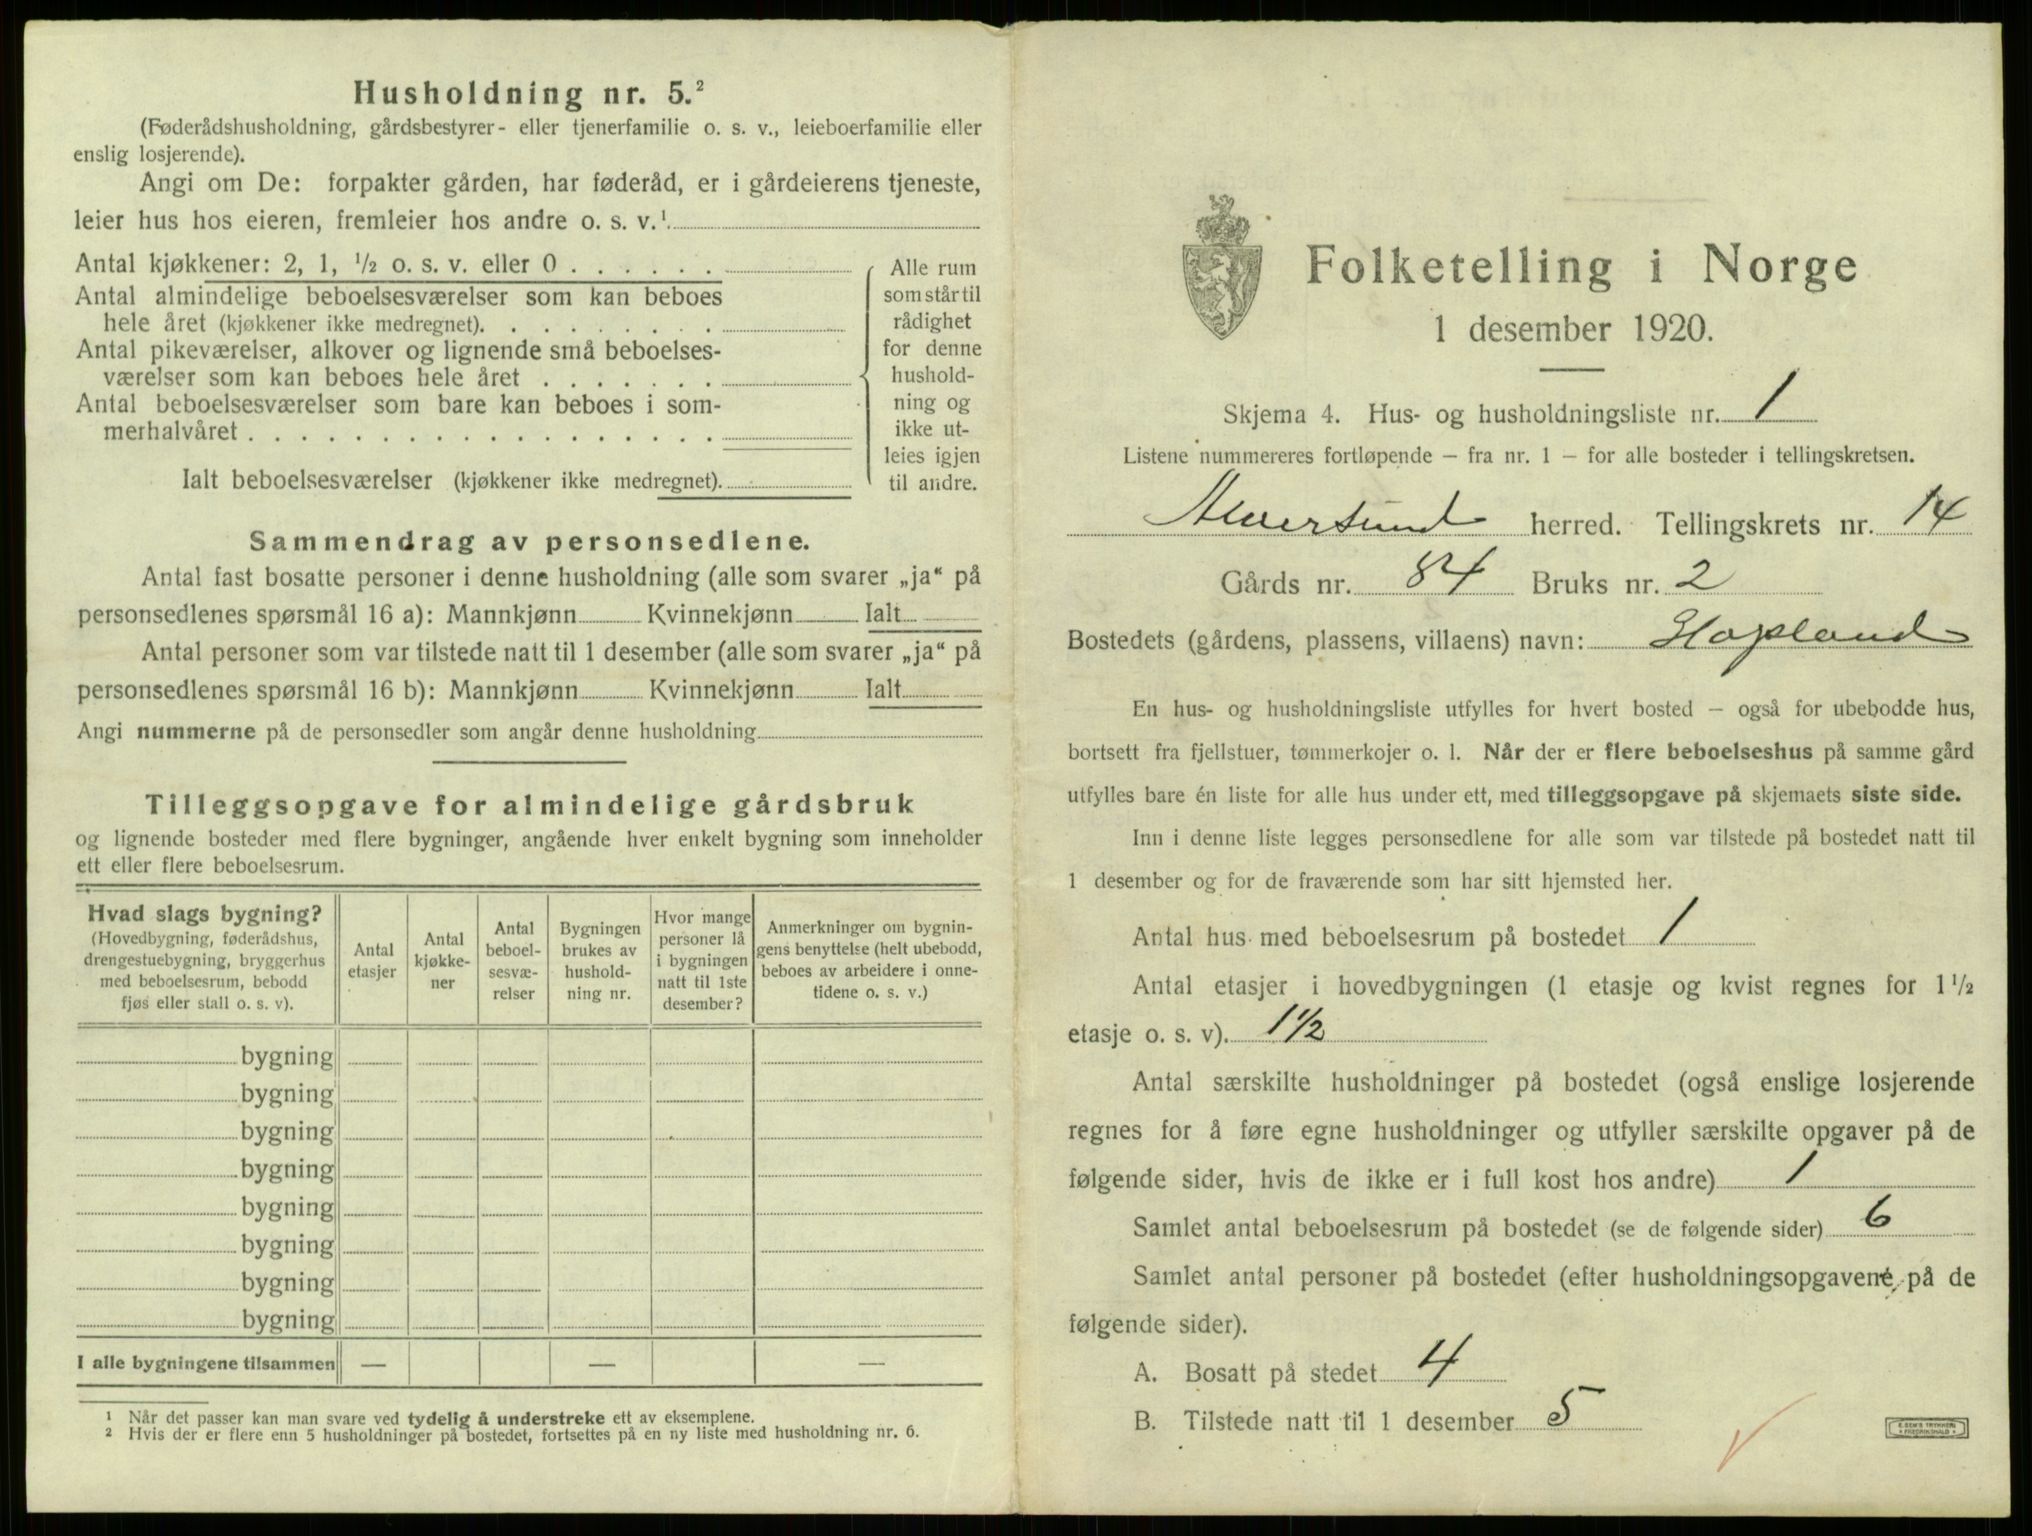 Husholdning nr. 5.²
(Føderådshusholdning, gårdsbestyrer- eller tjenerfamilie o. s. v., leieboerfamilie eller
enslig losjerende).
Angi om De: forpakter gården, har føderåd, er i gårdeierens tjeneste,
leier hus hos eieren, fremleier hos andre o. s. v.¹
Antal kjøkkener: 2, 1, ½ o. s. v. eller 0
Antal almindelige beboelsesværelser som kan beboes
hele året (kjøkkener ikke medregnet).
Antal pikeværelser, alkover og lignende små beboelses-
værelser som kan beboes hele året
Antal beboelsesværelser som bare kan beboes i som-
merhalvåret
Ialt beboelsesværelser (kjøkkener ikke medregnet).
Alle rum
som står til
rådighet
for denne
hushold-
ning og
ikke ut-
leies igjen
til andre.
Sammendrag av personsedlene.
Antal fast bosatte personer i denne husholdning (alle som svarer „ja“ på
personsedlenes spørsmål 16 a): Mannkjønn Kvinnekjønn Ialt
Antal personer som var tilstede natt til 1 desember (alle som svarer „ja“ på
personsedlenes spørsmål 16 b): Mannkjønn Kvinnekjønn Ialt
Angi nummerne på de personsedler som angår denne husholdning
Tilleggsopgave for almindelige gårdsbruk
og lignende bosteder med flere bygninger, angående hver enkelt bygning som inneholder
ett eller flere beboelsesrum.
Hvad slags bygning?
(Hovedbygning, føderådshus,
drengestuebygning, bryggerhus
med beboelsesrum, bebodd
fjøs eller stall o. s. v).
Antal
etasjer
Antal
kjøkke-
ner
Antal
beboel-
sesvæ-
relser
Bygningen
brukes av
hushold-
ning nr.
Hvor mange
personer lå
i bygningen
natt til 1ste
desember?
Anmerkninger om bygnin-
gens benyttelse (helt ubebodd,
beboes av arbeidere i onne-
tidene o. s. v.)
bygning
bygning
bygning
bygning
bygning
bygning
bygning
bygning
I alle bygningene tilsammen — — —
¹ Når det passer kan man svare ved tydelig å understreke ett av eksemplene.
² Hvis der er flere enn 5 husholdninger på bostedet, fortsettes på en ny liste med husholdning nr. 6.
Folketelling i Norge
1 desember 1920.
Skjema 4. Hus- og husholdningsliste nr. 1
Listene nummereres fortløpende — fra nr. 1 — for alle bosteder i tellingskretsen.
Alversund herred. Tellingskrets nr. 14
Gårds nr. 84 Bruks nr. 2
Bostedets (gårdens, plassens, villaens) navn: Hopland
En hus- og husholdningsliste utfylles for hvert bosted — også for ubebodde hus,
bortsett fra fjellstuer, tømmerkojer o. l. Når der er flere beboelseshus på samme gård
utfylles bare én liste for alle hus under ett, med tilleggsopgave på skjemaets siste side.
Inn i denne liste legges personsedlene for alle som var tilstede på bostedet natt til
1 desember og for de fraværende som har sitt hjemsted her.
Antal hus med beboelsesrum på bostedet 1
Antal etasjer i hovedbygningen (1 etasje og kvist regnes for 1½
etasje o. s. v). 1½
Antal særskilte husholdninger på bostedet (også enslige losjerende
regnes for å føre egne husholdninger og utfyller særskilte opgaver på de
følgende sider, hvis de ikke er i full kost hos andre) 1
Samlet antal beboelsesrum på bostedet (se de følgende sider) 6
Samlet antal personer på bostedet (efter husholdningsopgavene, på de
følgende sider).
A. Bosatt på stedet 4
B. Tilstede natt til 1 desember 5
E. SEM'S TRYKKERI
FREDRIKSHALD